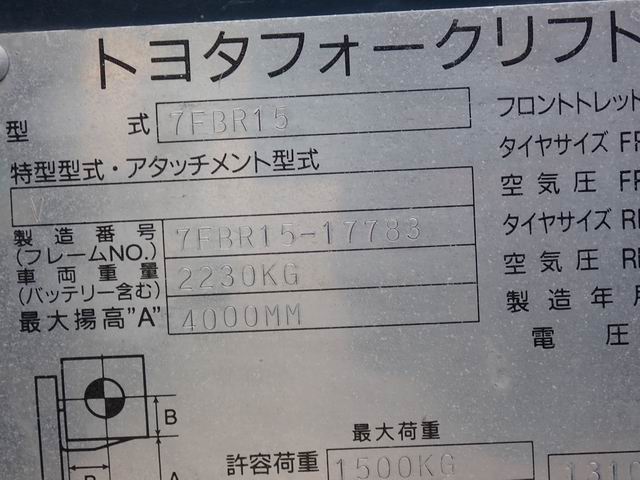 トヨタフォークリフト
型 式 7FBR15
特型型式・アタッチメント型式
V
製造番号
(フレームNO.) 7FBR15-17783
車両重量
(バッテリー含む) 2230KG
最大揚高"A" 4000MM
フロントトレット
タイヤサイズ FR
空気圧 FR
タイヤサイズ
空気圧
製造年
電圧
B
B
A
最大荷重
許容荷重 1500KG 1310